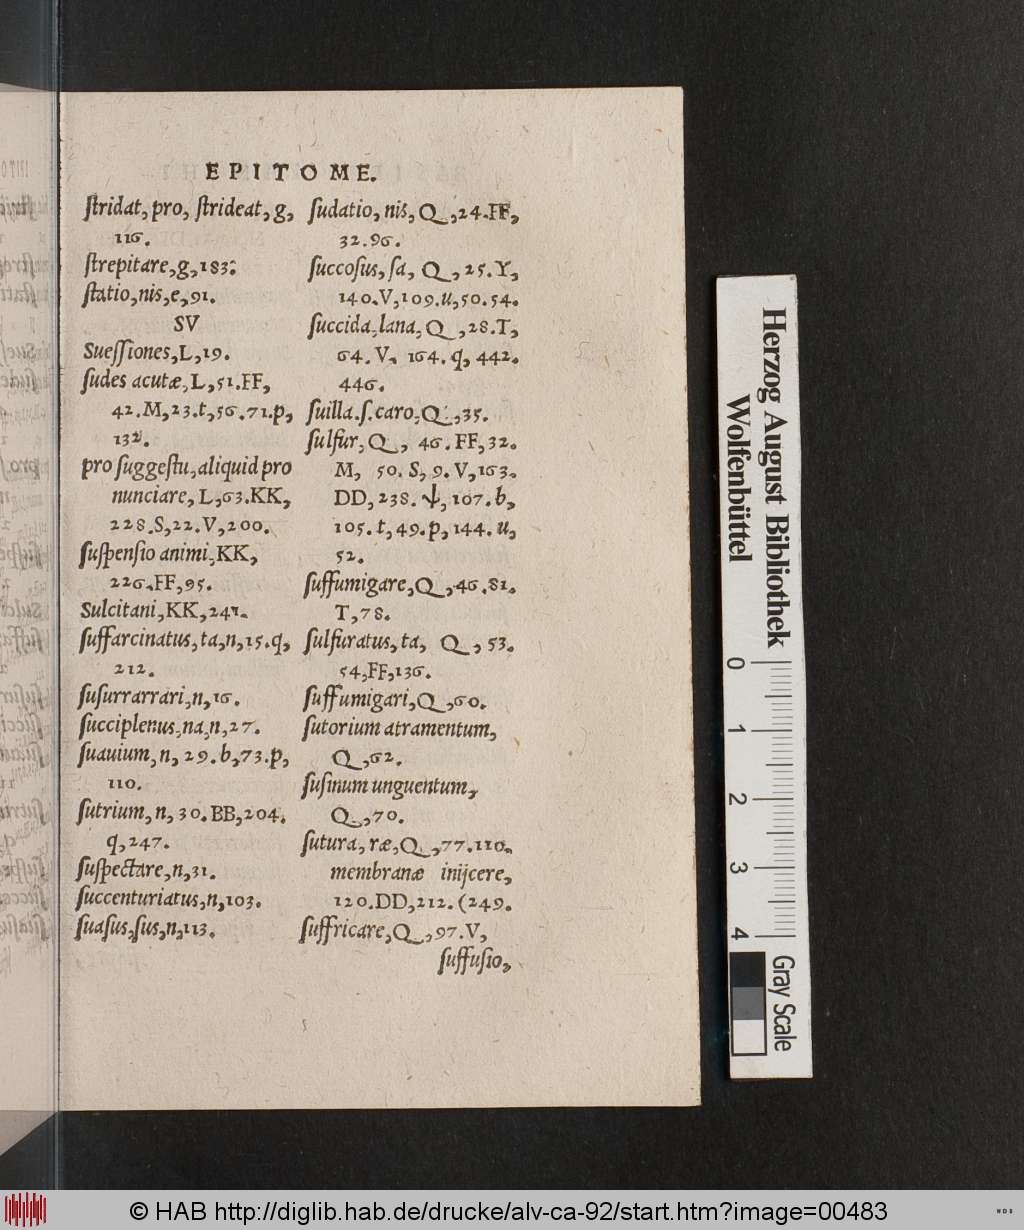 EPITOME.
ſtridat, pro, ſtrideat, g,
116.
ſtrepitare, g, 183.
ſtatio, nis, e, 91.
SV
Sueſſiones, L, 19.
ſudes acutæ, L, 51. FF,
42. M, 23. t, 56. 71. p,
132.
pro ſuggeſtu, aliquid pro
nunciare, L, 63. KK,
228. S, 22. V, 200.
ſuſpenſio animi, KK,
226. FF, 95.
Sulcitani, KK, 241.
ſuffarcinatus, ta, n, 15. q,
212.
ſuſurrarrari, n, 16.
ſucciplenus, na, n, 27.
ſuauium, n, 29. b, 73. p,
110.
ſutrium, n, 30. BB, 204.
q, 247.
ſuſpectare, n, 31.
ſuccenturiatus, n, 103.
ſuaſus, ſus, n, 113.
ſudatio, nis, Q, 24. FF,
32. 96.
ſuccoſus, ſa, Q, 25. Y,
140. V, 109. u, 50. 54.
ſuccida, lana, Q, 28. T,
64. V, 164. q, 442.
446.
ſuilla. ſ. caro, Q, 35.
ſulfur, Q, 46. FF, 32.
M, 50. S, 9. V, 163.
DD, 238. ψ, 107. b,
105. t, 49. p, 144. u,
52.
ſuffumigare, Q, 46. 81.
T, 78.
ſulfuratus, ta, Q, 53.
54, FF, 136.
ſuffumigari, Q, 60.
ſutorium atramentum,
Q, 62.
ſuſinum unguentum,
Q, 70.
ſutura, ræ, Q, 77. 110.
membranæ inijcere,
120. DD, 212. (249.
ſuffricare, Q, 97. V,
ſuffuſio,
Herzog August Bibliothek
Wolfenbüttel
0 1 2 3 4
Gray Scale
© HAB http://diglib.hab.de/drucke/alv-ca-92/start.htm?image=00483